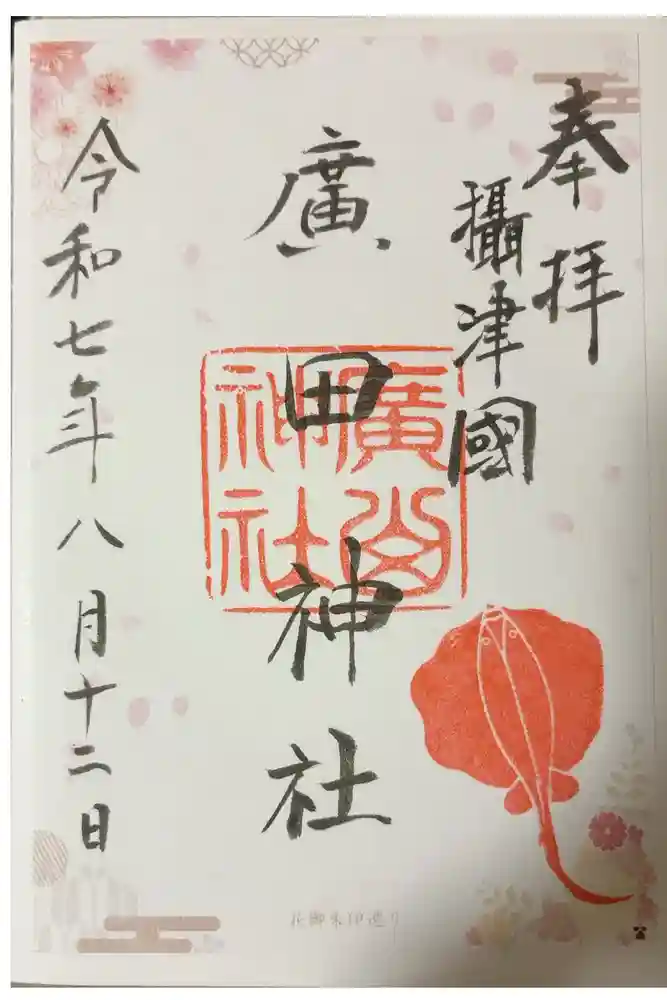 奉拝
攝津國
廣田神社
廣田
神社
令和七年八月十二日
花御朱印巡り